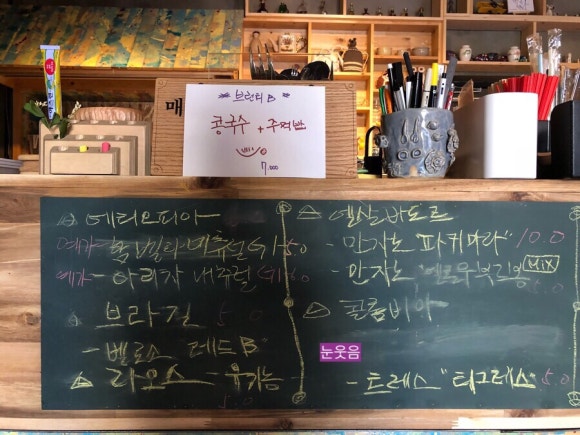 매
브런티 B
콩국수 + 주먹밥
7.000
에티오피아
예가 - 훔빌라 내추럴 G1 5.0
예가 - 아리차 내추럴 G1 5.0
브라질 5.0
- 벨로소 레드 B
라오스 - 유기농
5.0
엘살바도르
- 만자노 "파카마라" 10.0
- 만자노
MiX
콜롬비아
눈웃음
- 트레스 "티그레스 5.0